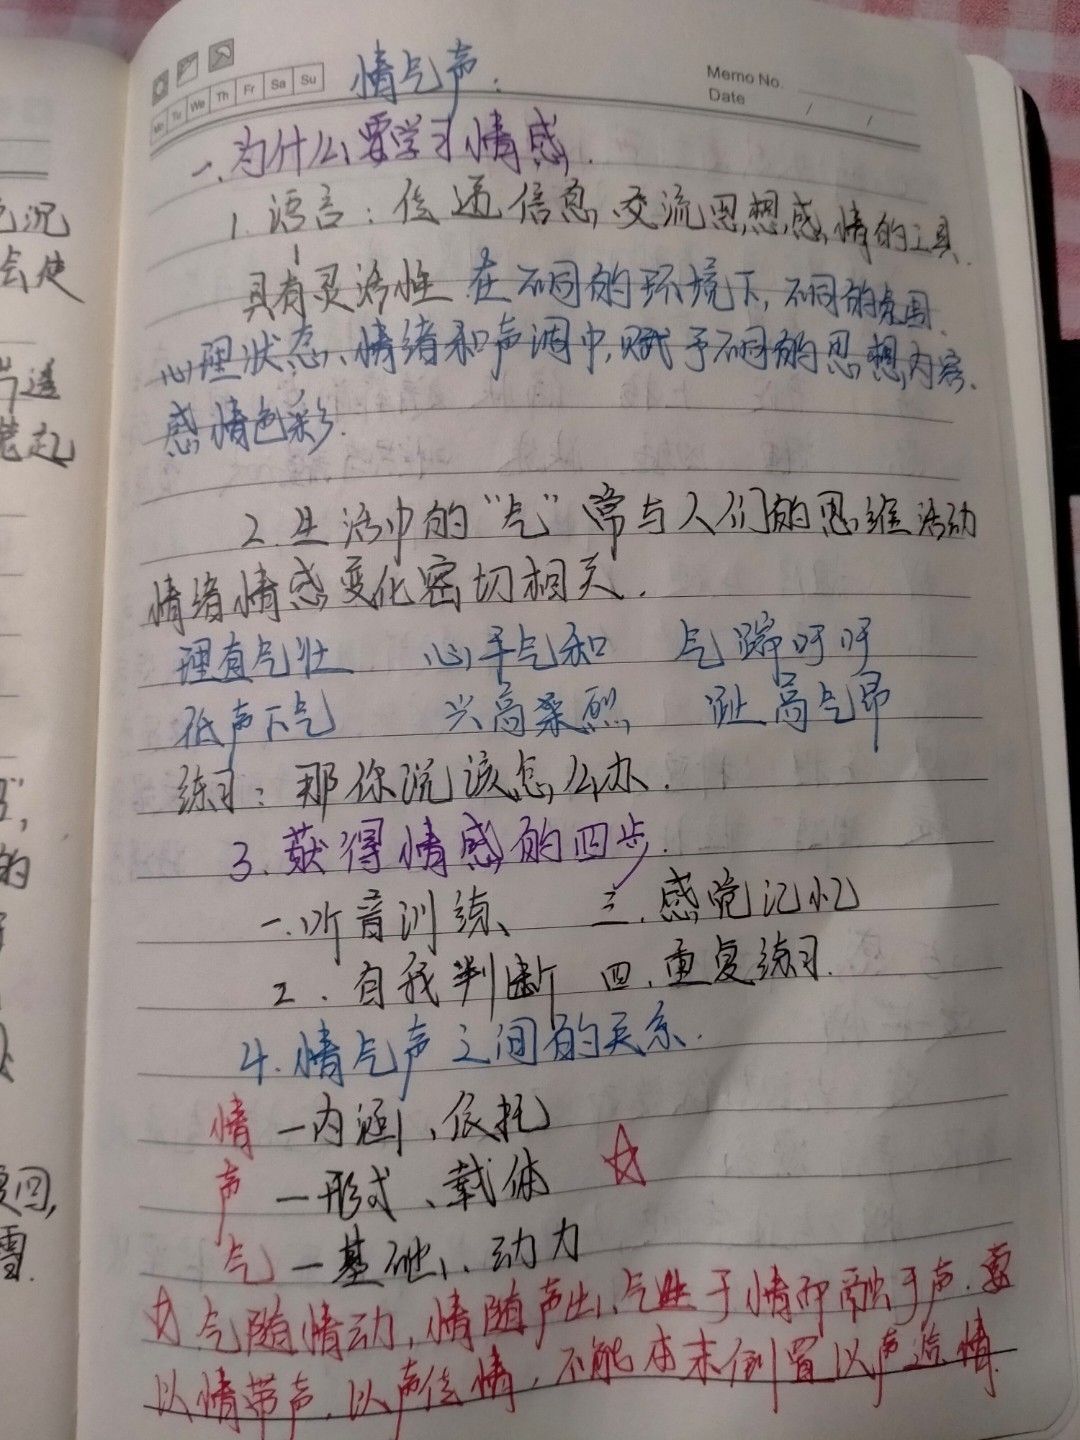 情气声:
Memo No.
Date / /
Mo Tu We Th Fr Sa Su
一、为什么要学习情感.
1. 语言: 传递信息、交流思想感情的工具.
具有灵活性 在不同的环境下, 不同的氛围、
心理状态、情绪和声调中, 赋予不同的思想内容、
感情色彩.
2. 生活中的“气”常与人们的思维活动
情绪情感变化密切相关.
理直气壮 心平气和 气踹吁吁
低声下气 兴高采烈 趾高气昂
练习: 那你说该怎么办.
3. 获得情感的四步.
一. 听音训练、 三. 感觉记忆
2. 自我判断 四. 重复练习.
4. 情气声之间的关系.
情 — 内涵、依托
声 — 形式、载体 ☆
气 — 基础、动力
☆ 气随情动, 情随声出, 气生于情而融于声. 要
以情带声, 以声传情, 不能本末倒置以声造情.
色沉
会使
的